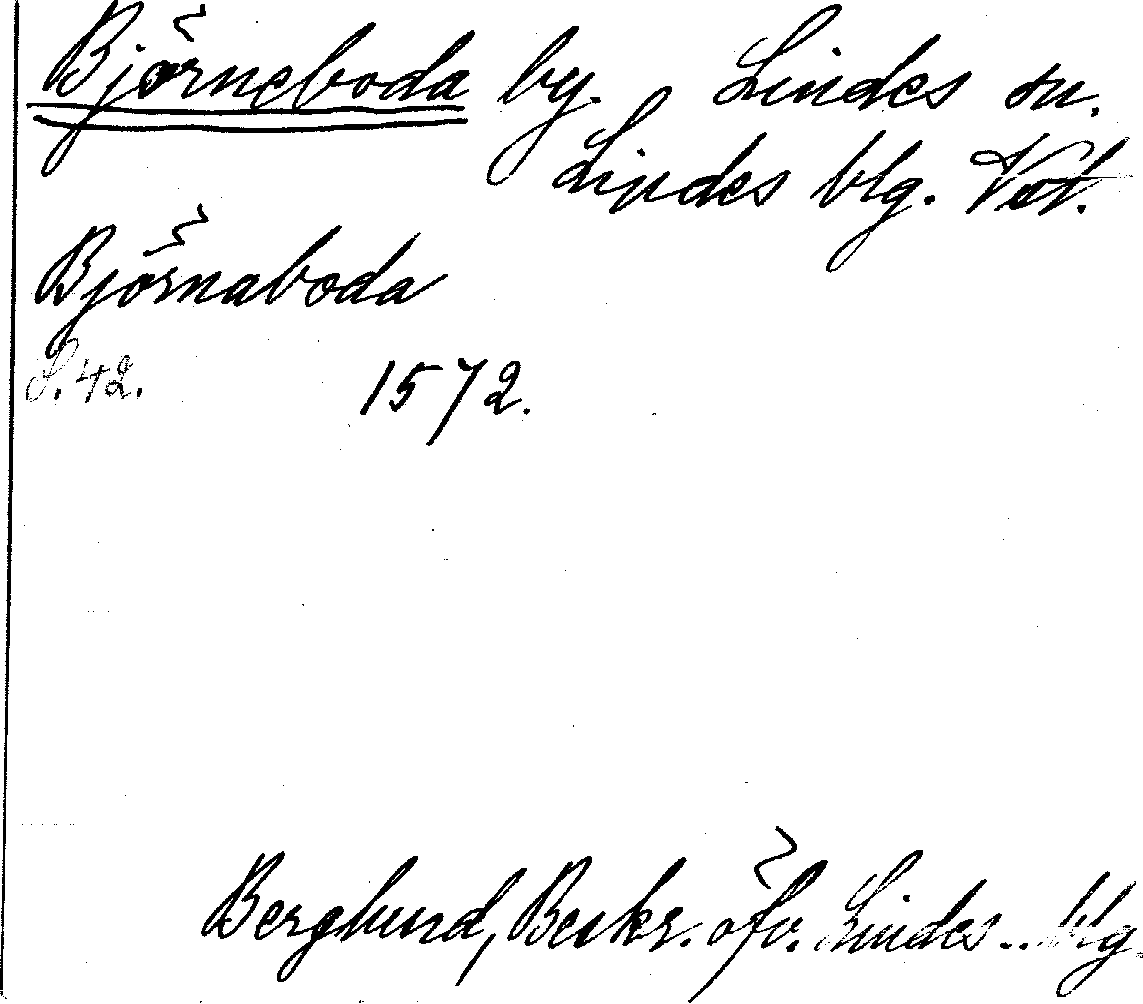 Björneboda by. Lindes sn.
Lindes blg. Vstl.
Björnaboda
S. 42. 1572.
Berglund, Beskr. öfv. Lindes.. blg.